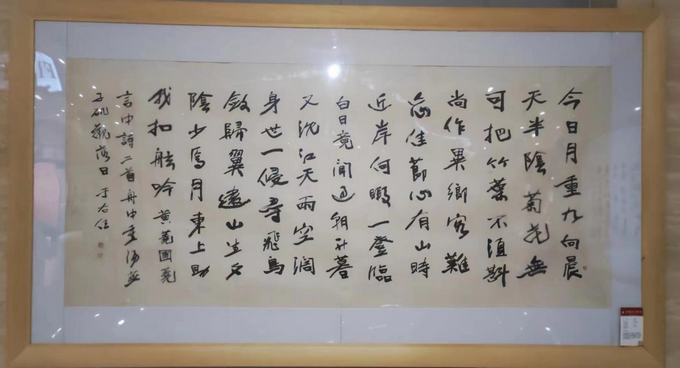 今日月重九向晨
天半陰菊花無
可把竹葉不須斟
尚作異鄉客難
忘佳節心有山時
近岸何暇一登臨
白日竟閒過朝升暮
又沈江天兩空闊
身世一侵尋飛鳥
斂歸翼遠山生夕
陰少焉月東上助
我扣舷吟 黃蕘圃
言中詩二首舟中重陽並
觀落日 于右任